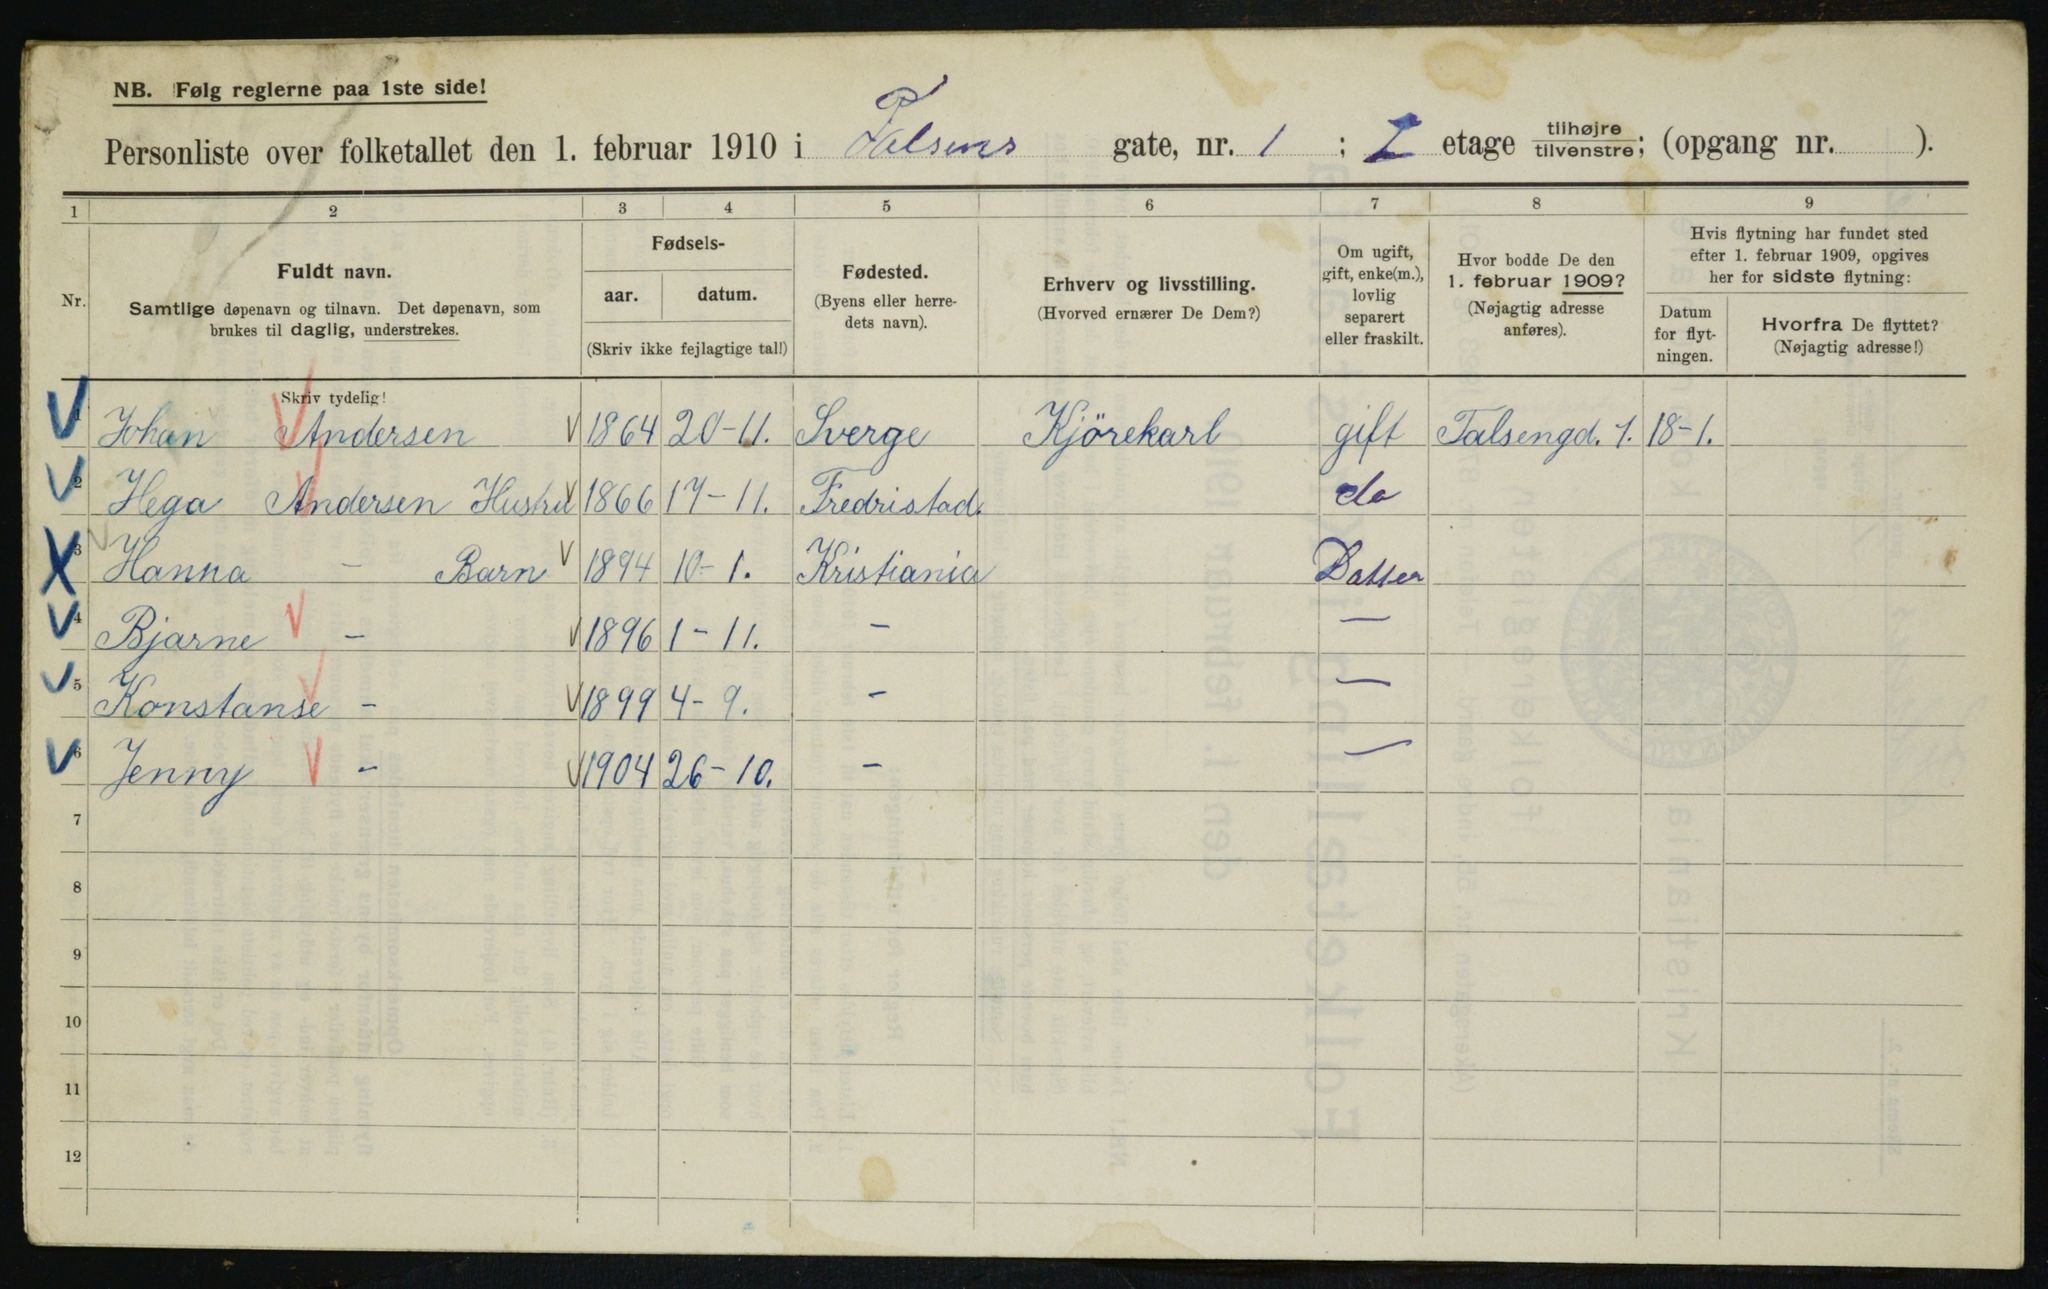 NB. Følg reglerne paa 1ste side!
Personliste over folketallet den 1. februar 1910 i Falsens gate, nr. 1 ; I etage tilhøjre tilvenstre; (opgang nr. ).
1 2 3 4 5 6 7 8 9
Nr.
Fuldt navn.
Samtlige døpenavn og tilnavn. Det døpenavn, som
brukes til daglig, understrekes.
Skriv tydelig!
Fødsels-
aar. datum.
(Skriv ikke fejlagtige tal!)
Fødested.
(Byens eller herre-
dets navn).
Erhverv og livsstilling.
(Hvorved ernærer De Dem?)
Om ugift,
gift, enke(m.),
lovlig
separert
eller fraskilt.
Hvor bodde De den
1. februar 1909?
(Nøjagtig adresse
anføres).
Hvis flytning har fundet sted
efter 1. februar 1909, opgives
her for sidste flytning:
Datum
for flyt-
ningen.
Hvorfra De flyttet?
(Nøjagtig adresse!)
1 Johan Andersen 1864 20-11. Sverge Kjörekarl gift Falsengd. 1. 18-1.
2 Hega Andersen Hustru 1866 17-11. Fredristad. do
3 Hanna - Barn 1894 10-1. Kristiania Datter
4 Bjarne - 1896 1-11. - —
5 Konstanse - 1899 4-9. - —
6 Jenny - 1904 26-10. - —
7
8
9
10
11
12